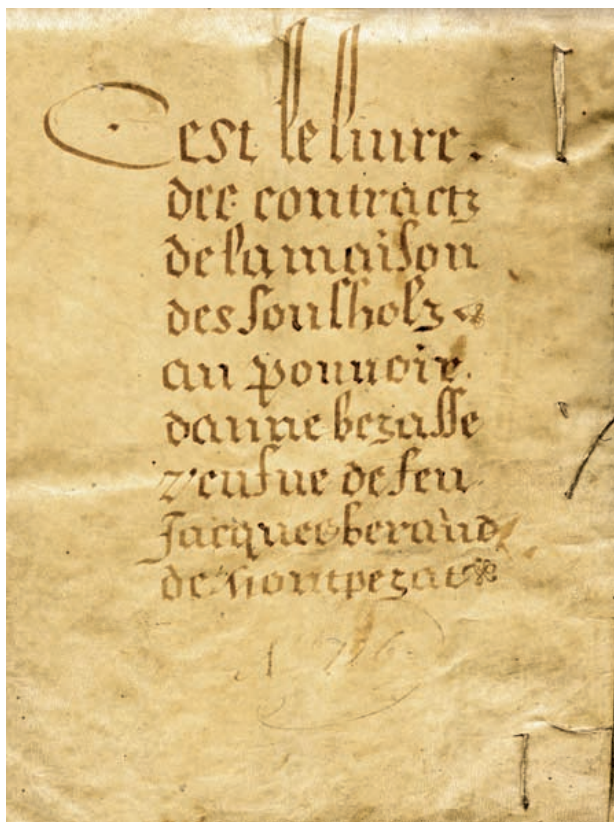 Cest le liure.
des contractz
de la maison
des soulholz
au pouuoir.
danne bezasse
veufue de feu
Jacques beraud
de montpezat